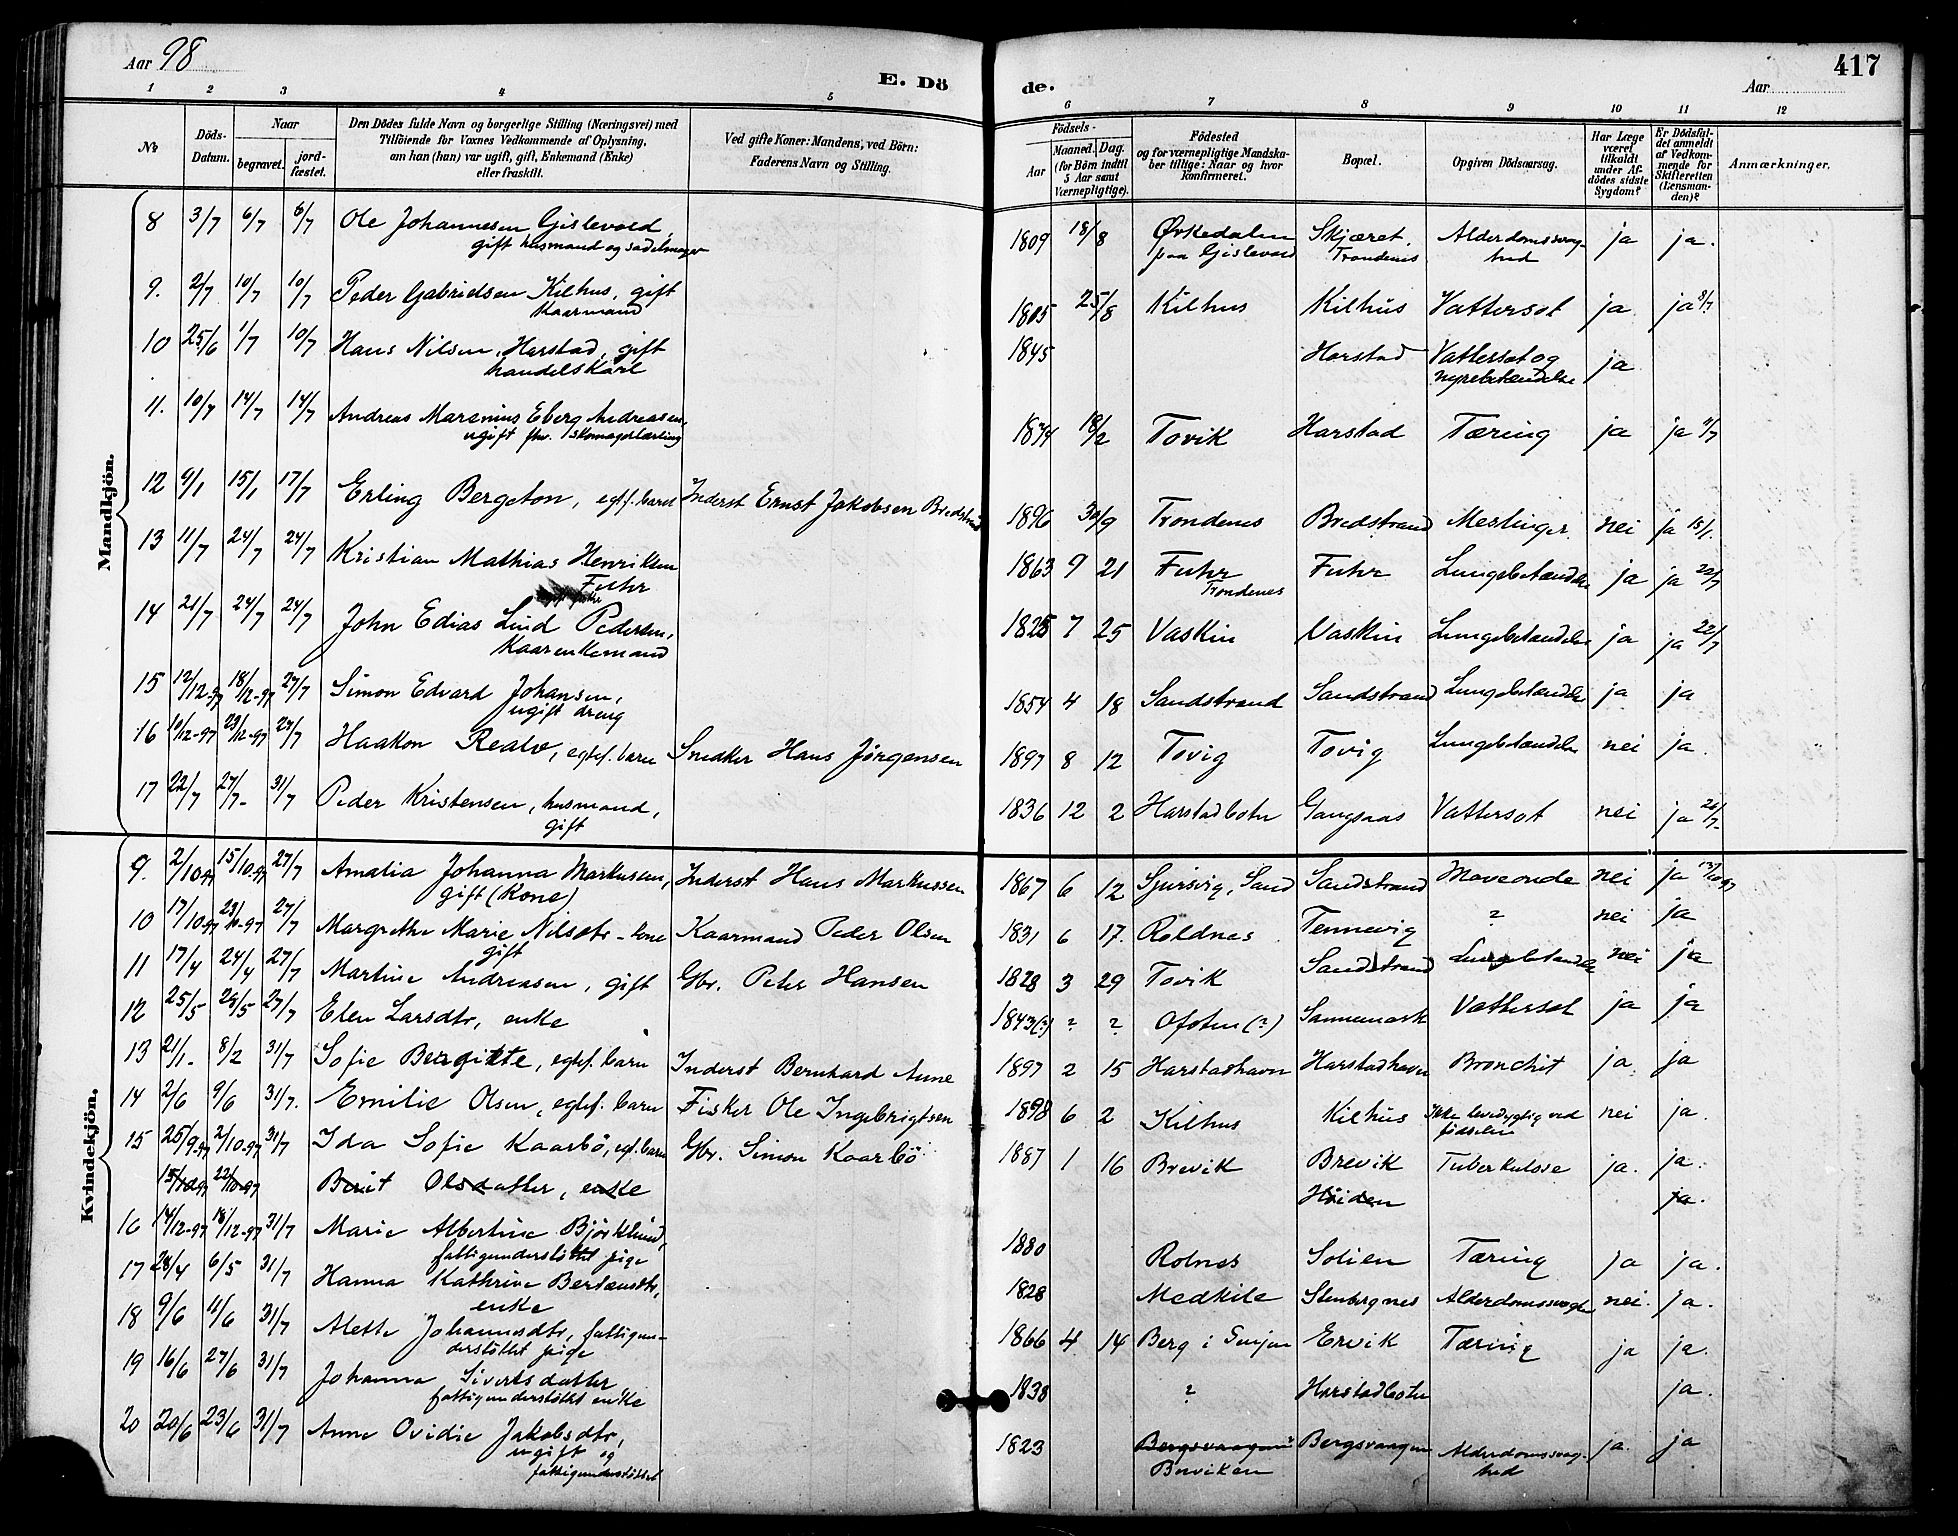 Aar 98
E. Dö
de.
Aar
417
1 2 3 4 5 6 7 8 9 10 11 12
No
Döds-Datum.
Naar
begravet.
jord-fæstet.
Den Dödes fulde Navn og borgerlige Stilling (Næringsvei) med
Tilföiende for Voxnes Vedkommende af Oplysning,
om han (hun) var ugift, gift, Enkemand (Enke)
eller fraskilt.
Ved gifte Koner: Mandens, ved Börn:
Faderens Navn og Stilling.
Födsels-
Aar
Maaned. Dag.
(for Börn indtil
5 Aar samt
Værnepligtige).
Födested
og for værnepligtige Mandska-
ber tillige: Naar og hvor
konfirmeret.
Bopæl.
Opgiven Dödsaarsag.
Har Læge
været
tilkaldt
under Af-
dödes sidste
Sygdom?
Er Dödsfal-
det anmeldt
af Vedkom-
mende for
Skifteretten
(Lensman-
den)?
Anmærkninger.
Mandkjön.
8 3/7 6/7 6/7 Ole Johannesen Gislevold, 1809 18/8 Ørkedalen Skjæret. Alderdomssvag- ja ja.
gift husmand og sadelmager paa Gislevold Trondenes hed
9. 2/7 10/7 10/7 Peder Gabrielsen Kilhus, gift 1805 25/8 Kilhus Kilhus Vattersot ja ja 8/7
Kaarmand
10 25/6 1/7 10/7 Hans Nilsen, Harstad, gift 1845 Harstad Vattersot og ja
handelskarl nyrebetændelse
11. 10/7 14/7 14/7 Andreas Marenius Eberg Andreasen, 1874 18/2 Tovik Harstad Tæring ja ja 11/7
ugift fhv. skomagerlærling
12 9/1 15/1 17/7 Erling Bergeton, egtf. barn Inderst Ernst Jakobsen Bredstrand 1896 30/9 Trondenes Bredstrand Meslinger. nei ja 15/1.
13 11/7 24/7 24/7 Kristian Mathias Henriksen 1863 9 21 Fuhr Fuhr Lungebetændelse ja ja 22/7
Fuhr Trondenes
14 21/7 24/7 24/7 John Edias Lind Pedersen, 1825 7 25 Vaskin Vaskin Lungebetændelse ja ja 22/7
Kaarenkemand
15 12/12-97 18/12-97 27/7 Simon Edvard Johansen, 1854 4 18 Sandstrand Sandstrand Lungebetændelse ja ja
ugift dreng
16 10/12-97 23/12-97 27/7 Haakon Realv, egtef. barn Snedker Hans Jörgensen 1897 8 12 Tovig Tovig Lungebetændelse nei ja.
17 22/7 27/7- 31/7 Peder Kristensen, husmand, 1836 12 2 Harstadbotn Gangsaas Vattersot nei ja 26/7-
gift
Kvindekjön.
9. 2/10-97 15/10-97 27/7 Amalia Johanna Markusen, Inderst Hans Markussen 1867 6 12 Sand Sandstrand nei ja 13/10 97
gift (Kone)
10 17/10-97 23/10-97 27/7 Margrethe Marie Nilsdtr - kone Kaarmand Peder Olsen 1831 6 17. Roldnes Tennevig ? nei ja
gift
11 17/4 24/4 27/7 Martine Andreasen, gift Gbr. Peter Hansen 1828 3 29 Tovik Sandstrand Lungebetændelse nei ja
12 25/5 28/5 27/7 Elen Larsdtr, enke 1843(?) ? ? Ofoten (?) Sannemark Vattersot ja ja
13 21/1- 8/2 31/7 Sofie Bergitte, egtef. barn Inderst Bernhard Anne 1897 2 15 Harstadhavn Harstadhavn Bronchit ja. ja
14 2/6 9/6 31/7. Emilie Olsen, egtef. barn Fisker Ole Ingebrigtsen 1898 6 2 Kilhus Kilhus Ikke levedygtig ved nei ja.
födselen
15 25/9-97 2/10-97 31/7 Ida Sofie Kaarbö, egt. barn Gbr. Simon Kaarbö 1887 1 16 Brevik Brevik Tuberkulose ja. ja.
15/10-97 22/10-97 Berit Olsdatter, enke Höiden ja.
16 14/12-97 18/12-97 31/7 Marie Albertine Björklund, 1880 Rolnes Solien Tæring ja ja.
fattigunderstöttet pige
17 28/4 6/5 31/7 Hanna Kathrine Bertensdtr, 1828 Medkile Stenbergnes Alderdomssvaghed nei. ja.
enke
18 9/6 11/6 31/7 Alette Johannesdtr, fattigun- 1866 4 14 Berg i Ervik Tæring ja ja.
derstöttet pige
19 16/6 27/6 31/7 Johanna Sivertsdatter 1838 ? Harstadbotn ja.
fattigunderstöttet enke
20 20/6 23/6 31/7 Anne Ovidie Jakobsdtr, 1823 Bergsvaagen Bergsvaagen Alderdomssvag- ja. ja
ugift og hed
fattigunderstöttet